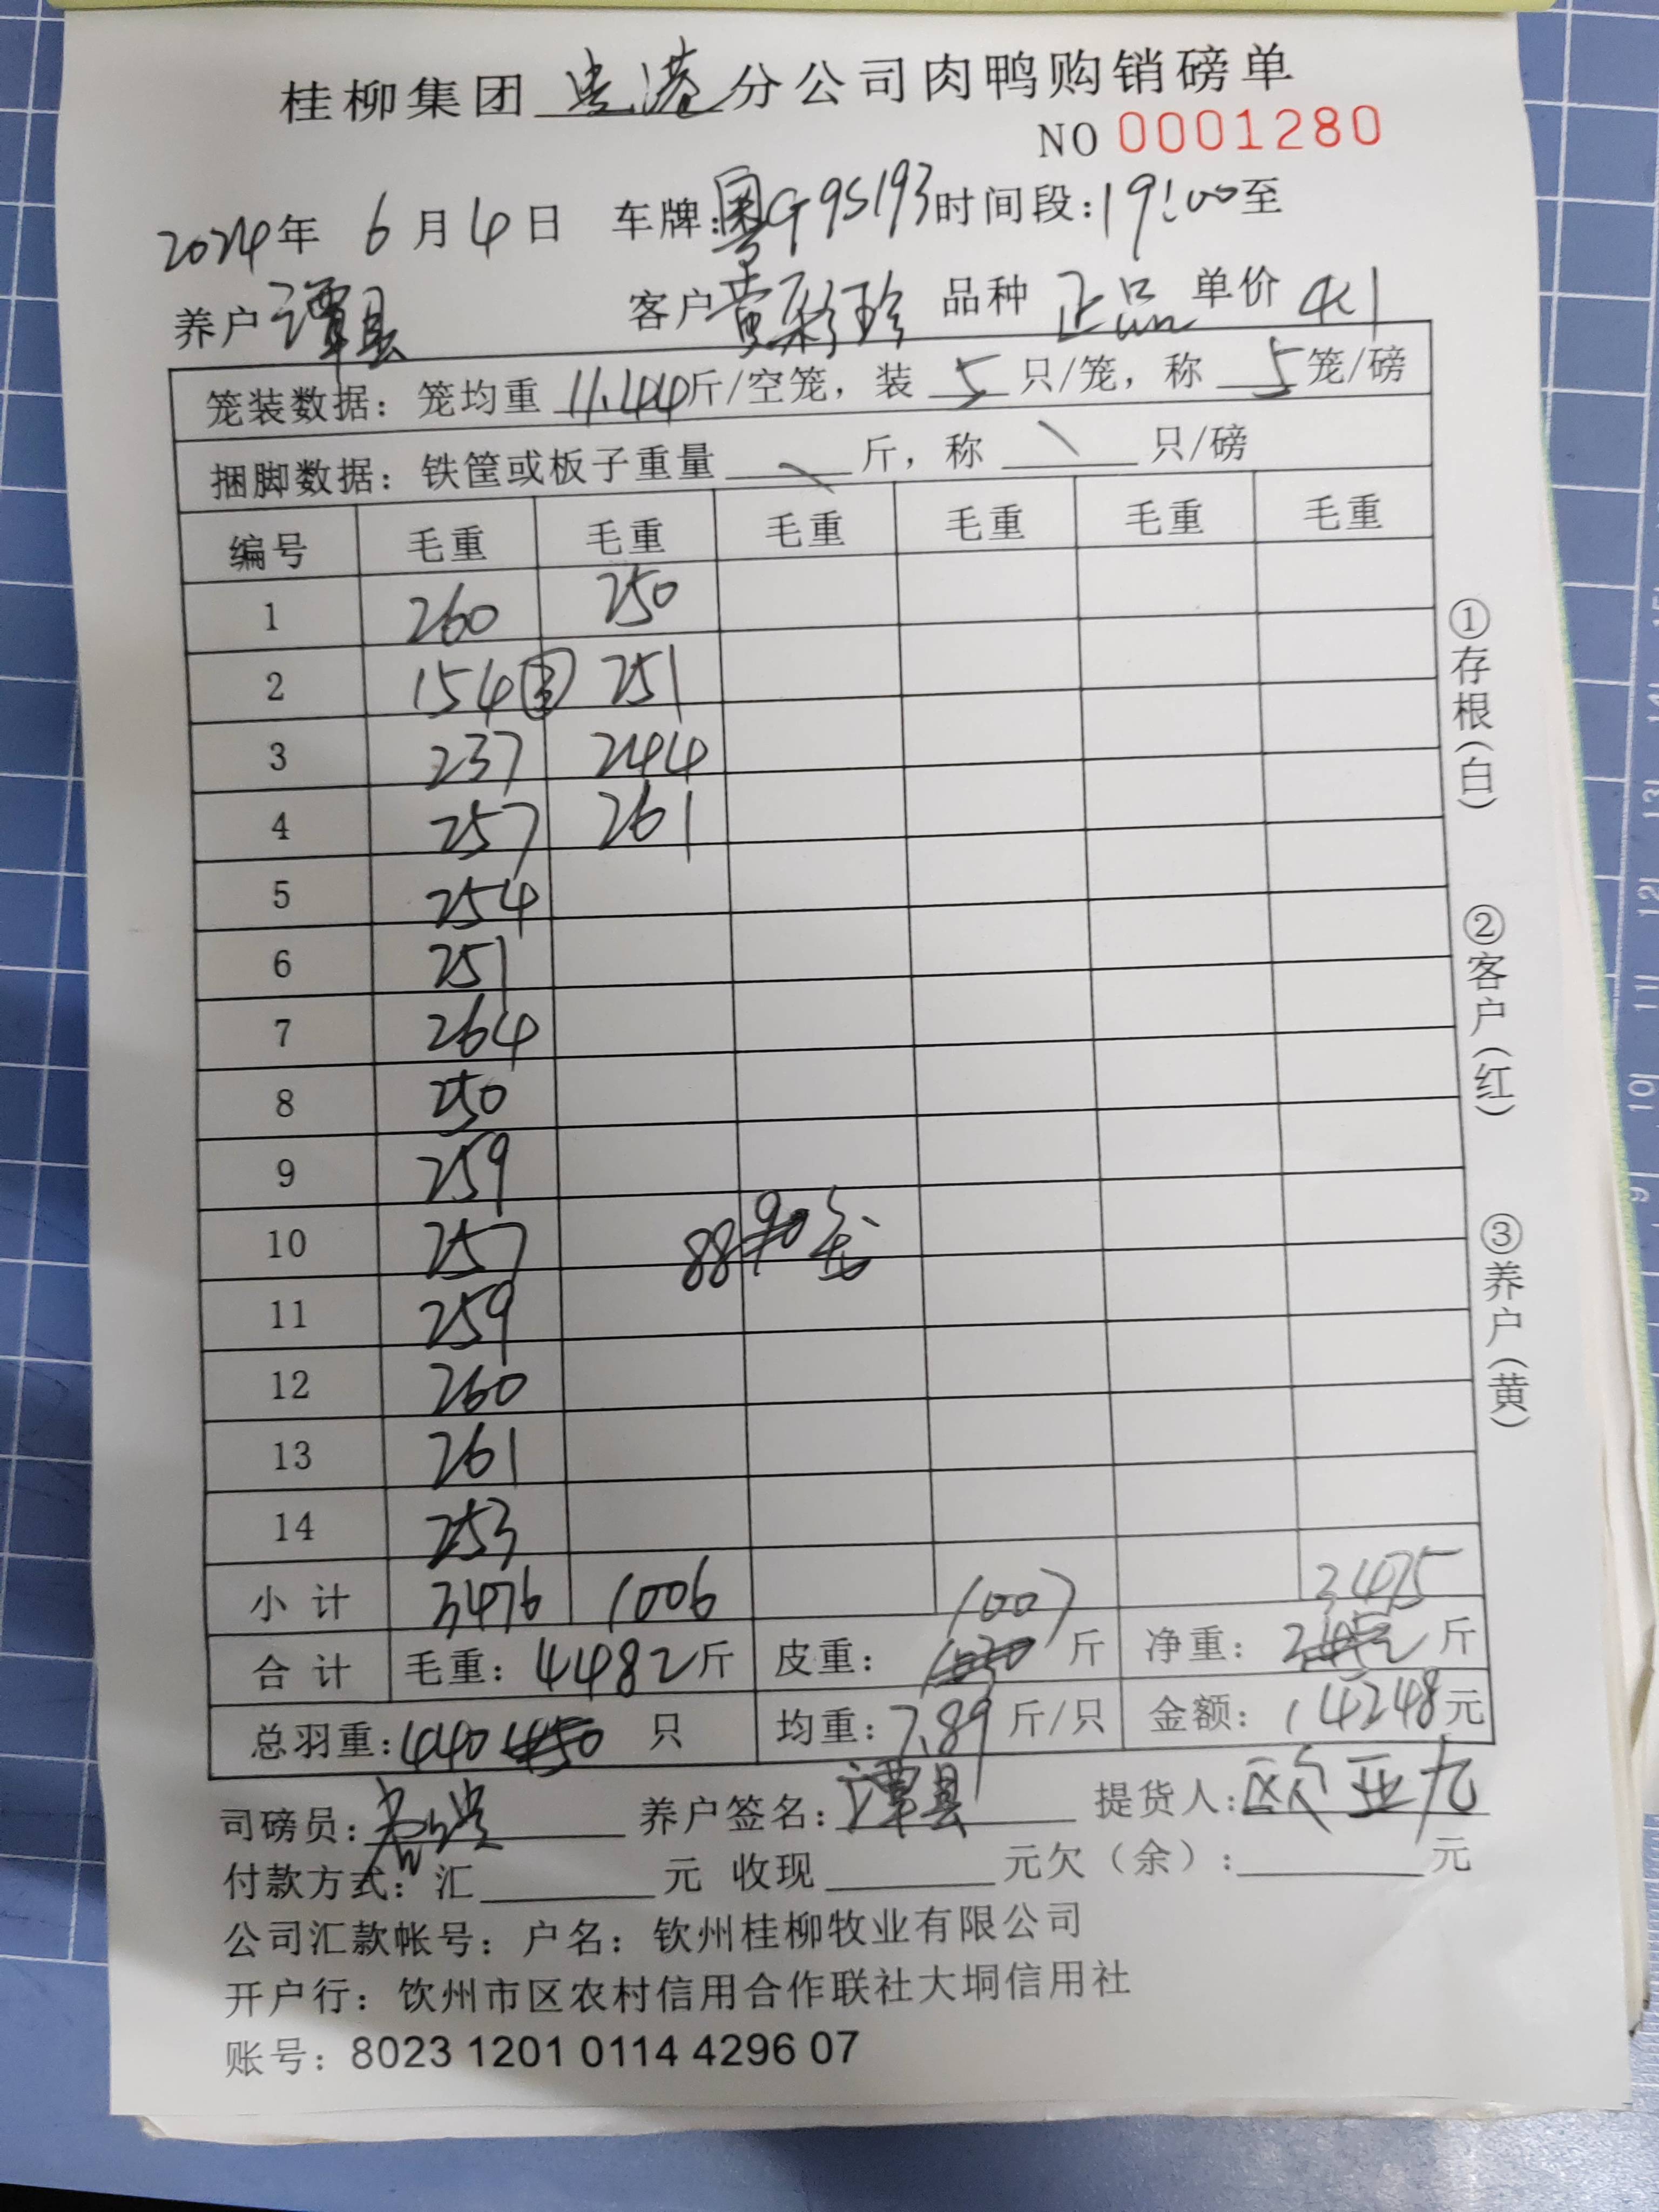 桂柳集团 贵港 分公司肉鸭购销磅单
NO 0001280
2024年 6月4日 车牌:粤G95193时间段:19:00至
养户 谭县 客户 黄彩珍 品种 正品 单价 4.1
笼装数据：笼均重 11.44斤/空笼，装 5 只/笼，称 5 笼/磅
捆脚数据：铁筐或板子重量 \ 斤，称 \ 只/磅
编号 毛重 毛重 毛重 毛重 毛重 毛重
1 260 250
2 154③ 251
3 237 244
4 257 261
5 254
6 251
7 264
8 250
9 259
10 257 88 90 笼
11 259
12 260
13 261
14 253
小计 3476 1006 1007 3475
合计 毛重：4482斤 皮重：斤 净重：斤
总羽重:440 450 只 均重:7.89 斤/只 金额:14248元
司磅员: 养户签名:谭县 提货人:欧亚九
付款方式：汇 元 收现 元欠（余）: 元
公司汇款帐号：户名：钦州桂柳牧业有限公司
开户行：钦州市区农村信用合作联社大垌信用社
账号：8023 1201 0114 4296 07
①存根(白)
②客户(红)
③养户(黄)
15
14
13
12
11
10
9